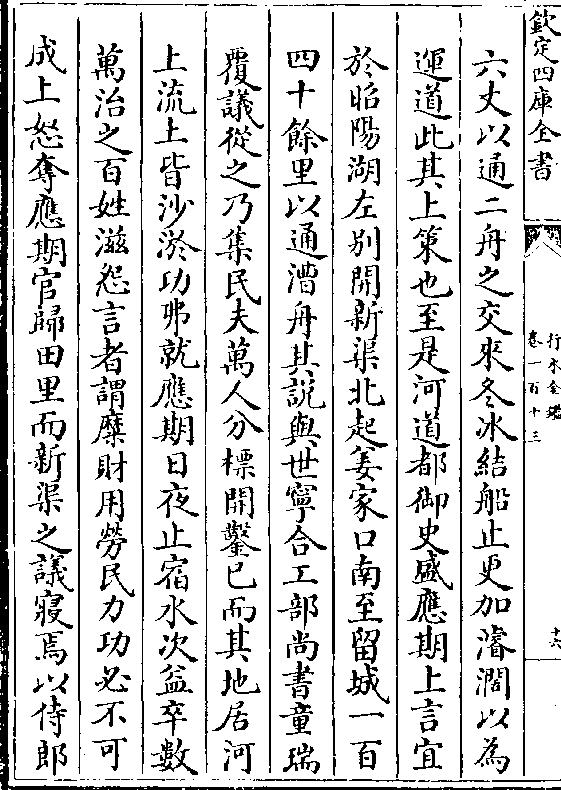 欽定四庫全書
行水金鑑
卷一百十三
十六
六丈以通二舟之交來冬冰結船止更加濬濶以為
運道此其上策也至是河道都御史盛應期上言宜
於昭陽湖左别開新渠北起姜家口南至留城一百
四十餘里以通漕舟其説與世寧合工部尚書童瑞
覆議從之乃集民夫萬人分標開鑿已而其地居河
上流上皆沙淤功弗就應期日夜止宿水次益卒數
萬治之百姓滋怨言者謂糜財用勞民力功必不可
成上怒奪應期官歸田里而新渠之議寢焉以侍郎